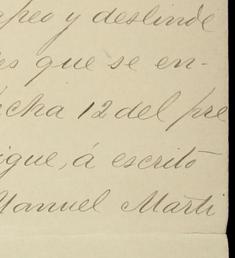 apeo y deslinde
es que se en-
echa 12 del pre
igue, á escrito
Manuel Marti